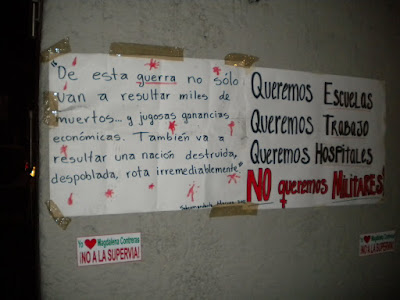 "De esta guerra no sólo
van a resultar miles de
muertos... y jugosas ganancias
económicas. También va a
resultar una nación destruida,
despoblada, rota irremediablemente"
Subcomandante Marcos
Queremos ESCUELAS
Queremos TRABAJO
Queremos HOSPITALES
NO queremos MILITARES
Yo Magdalena Contreras
¡NO A LA SUPERVIA!
Yo Magdalena Contreras
¡NO A LA SUPERVIA!